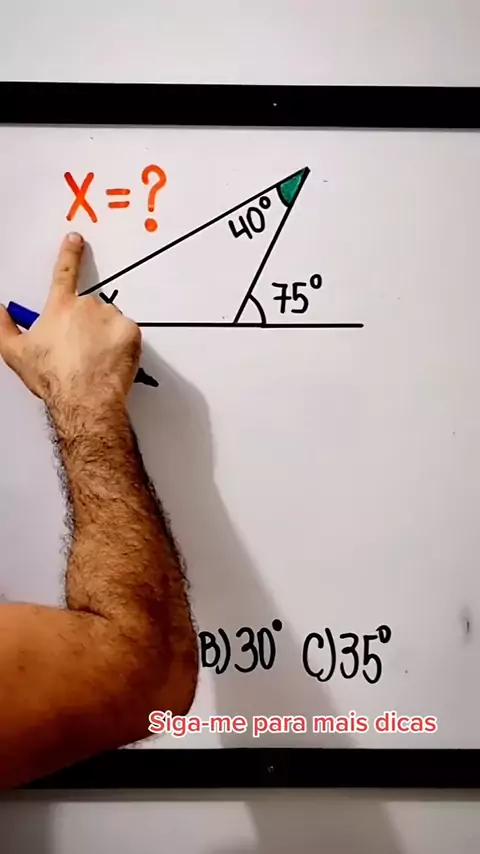 X = ?
40°
75°
X
B) 30° C) 35°
Siga-me para mais dicas